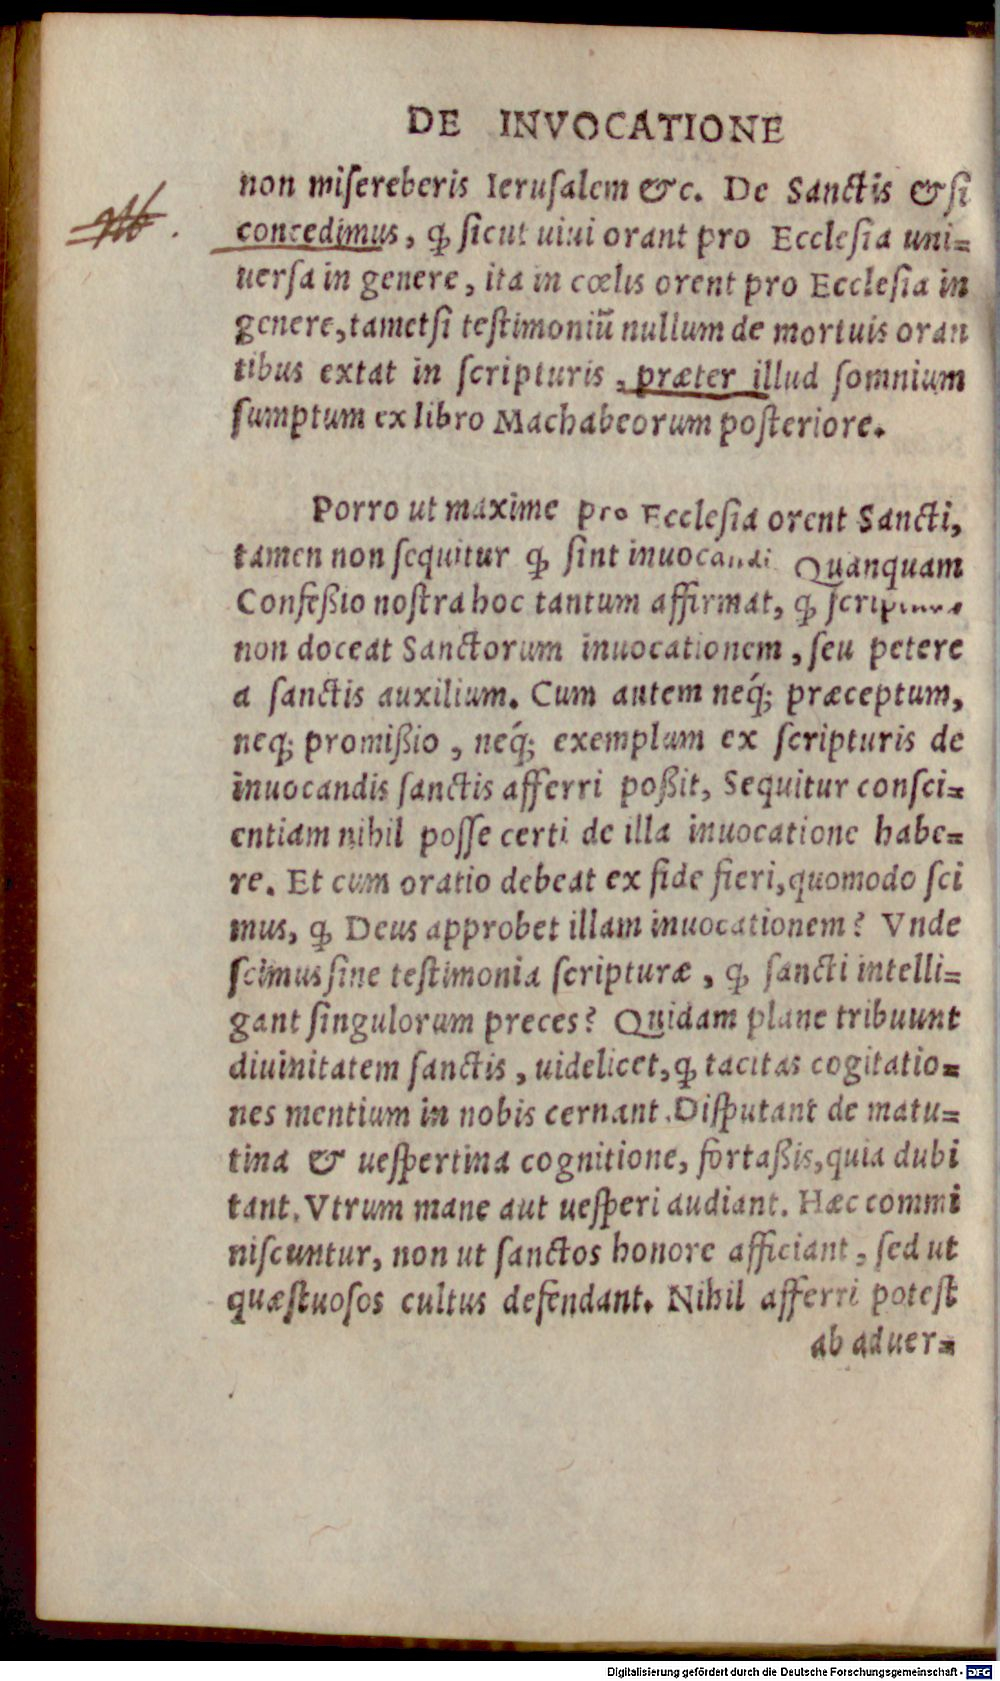 DE INVOCATIONE
non misereberis Ierusalem &c. De Sanctis & si
NB.
concedimus, ꝙ sicut uiui orant pro Ecclesia uni-
uersa in genere, ita in cœlis orent pro Ecclesia in
genere, tametsi testimoniũ nullum de mortuis oran
tibus extat in scripturis, præter illud somnium
sumptum ex libro Machabeorum posteriore.
Porro ut maxime pro Ecclesia orent Sancti,
tamen non sequitur ꝙ sint inuocandi Quanquam
Confeßio nostra hoc tantum affirmat, ꝙ scriptura
non doceat Sanctorum inuocationem, seu petere
a sanctis auxilium. Cum autem neq́; præceptum,
neq; promißio, neq́; exemplum ex scripturis de
inuocandis sanctis afferri poßit, Sequitur consci-
entiam nihil posse certi de illa inuocatione habe-
re. Et cum oratio debeat ex fide fieri, quomodo sci
mus, ꝙ Deus approbet illam inuocationem? Vnde
scimus sine testimonia scripturæ, ꝙ sancti intelli-
gant singulorum preces? Quidam plane tribuunt
diuinitatem sanctis, uidelicet, ꝙ tacitas cogitatio-
nes mentium in nobis cernant. Disputant de matu-
tina & uespertina cognitione, fortaßis, quia dubi
tant. Vtrum mane aut uesperi audiant. Hæc commi
niscuntur, non ut sanctos honore afficiant, sed ut
quæstuosos cultus defendant. Nihil afferri potest
ab aduer-
Digitalisierung gefördert durch die Deutsche Forschungsgemeinschaft - DFG